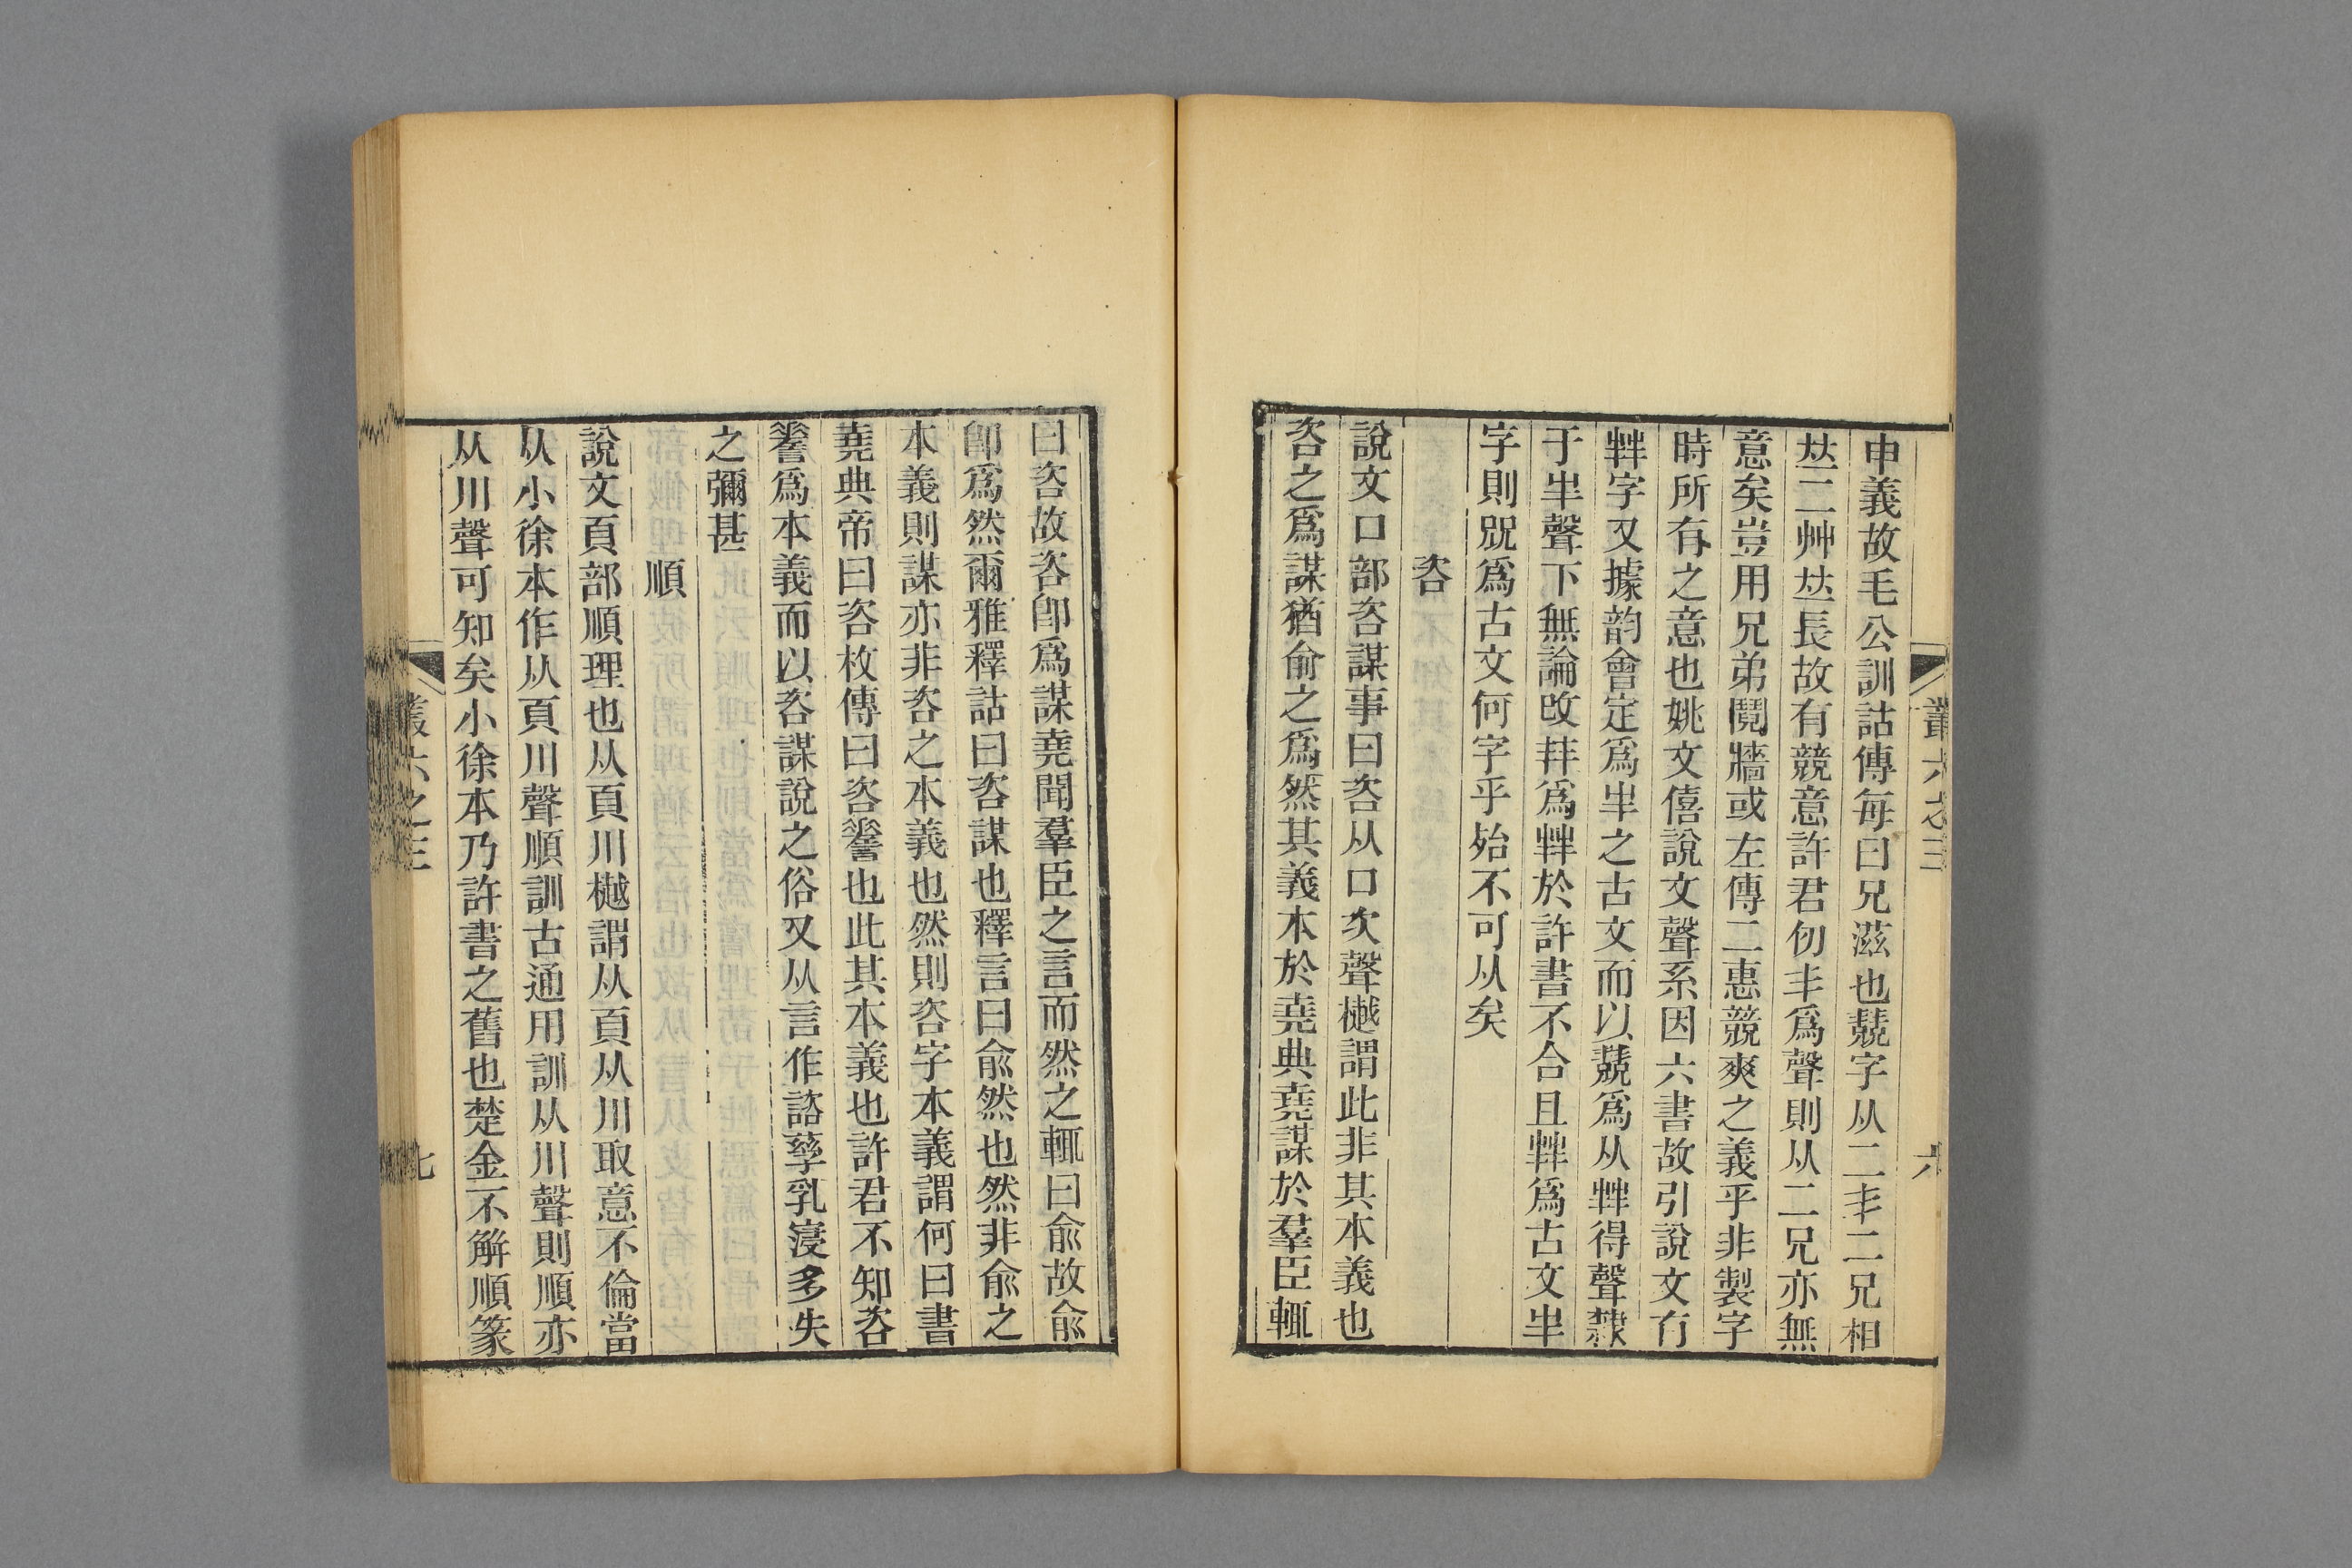 申義故毛公訓詁傳每曰兄滋也兢字从二丯二兄相
𡴆二艸𡴆長故有競意許君仞丯爲聲則从二兄亦無
意矣豈用兄弟鬩牆或左傳二惠競爽之義乎非製字
時所有之意也姚文僖說文聲系因六書故引說文有
字又據韵會定爲丵之古文而以兢爲从得聲隸
于丵聲下無論改爲於許書不合且爲古文丵
字則況爲古文何字乎殆不可从矣
咨
說文口部咨謀事曰咨从口次聲樾謂此非其本義也
咨之爲謀猶俞之爲然其義本於堯典堯謀於羣臣輒
曰咨故咨卽爲謀堯聞羣臣之言而然之輒曰俞故俞
卽爲然爾雅釋詁曰咨謀也釋言曰俞然也然非俞之
本義則謀亦非咨之本義也然則咨字本義謂何曰書
堯典帝曰咨枚傳曰咨嗟也此其本義也許君不知咨
嗟爲本義而以咨謀說之俗又从言作諮孳乳寖多失
之彌甚
順
說文頁部順理也从頁川樾謂从頁从川取意不倫當
从小徐本作从頁川聲順訓古通用訓从川聲則順亦
从川聲可知矣小徐本乃許書之舊也楚金不解順篆
叢六之三
六
叢六之三
七